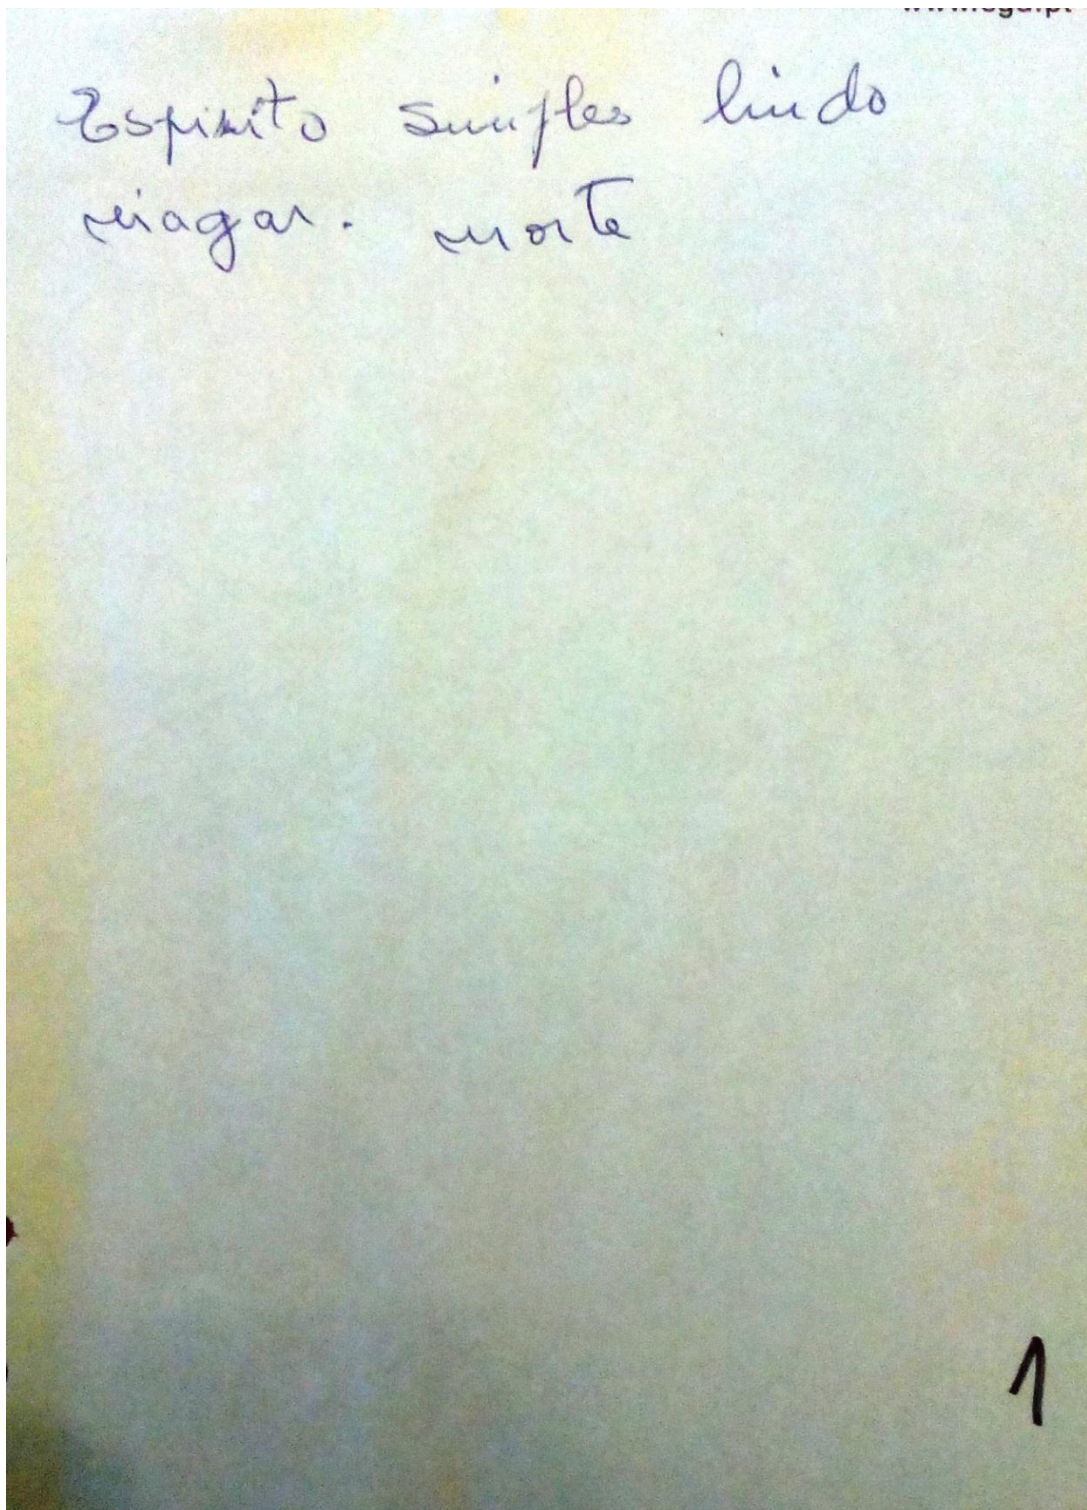 Espirito simples lindo
viagar. morte
1